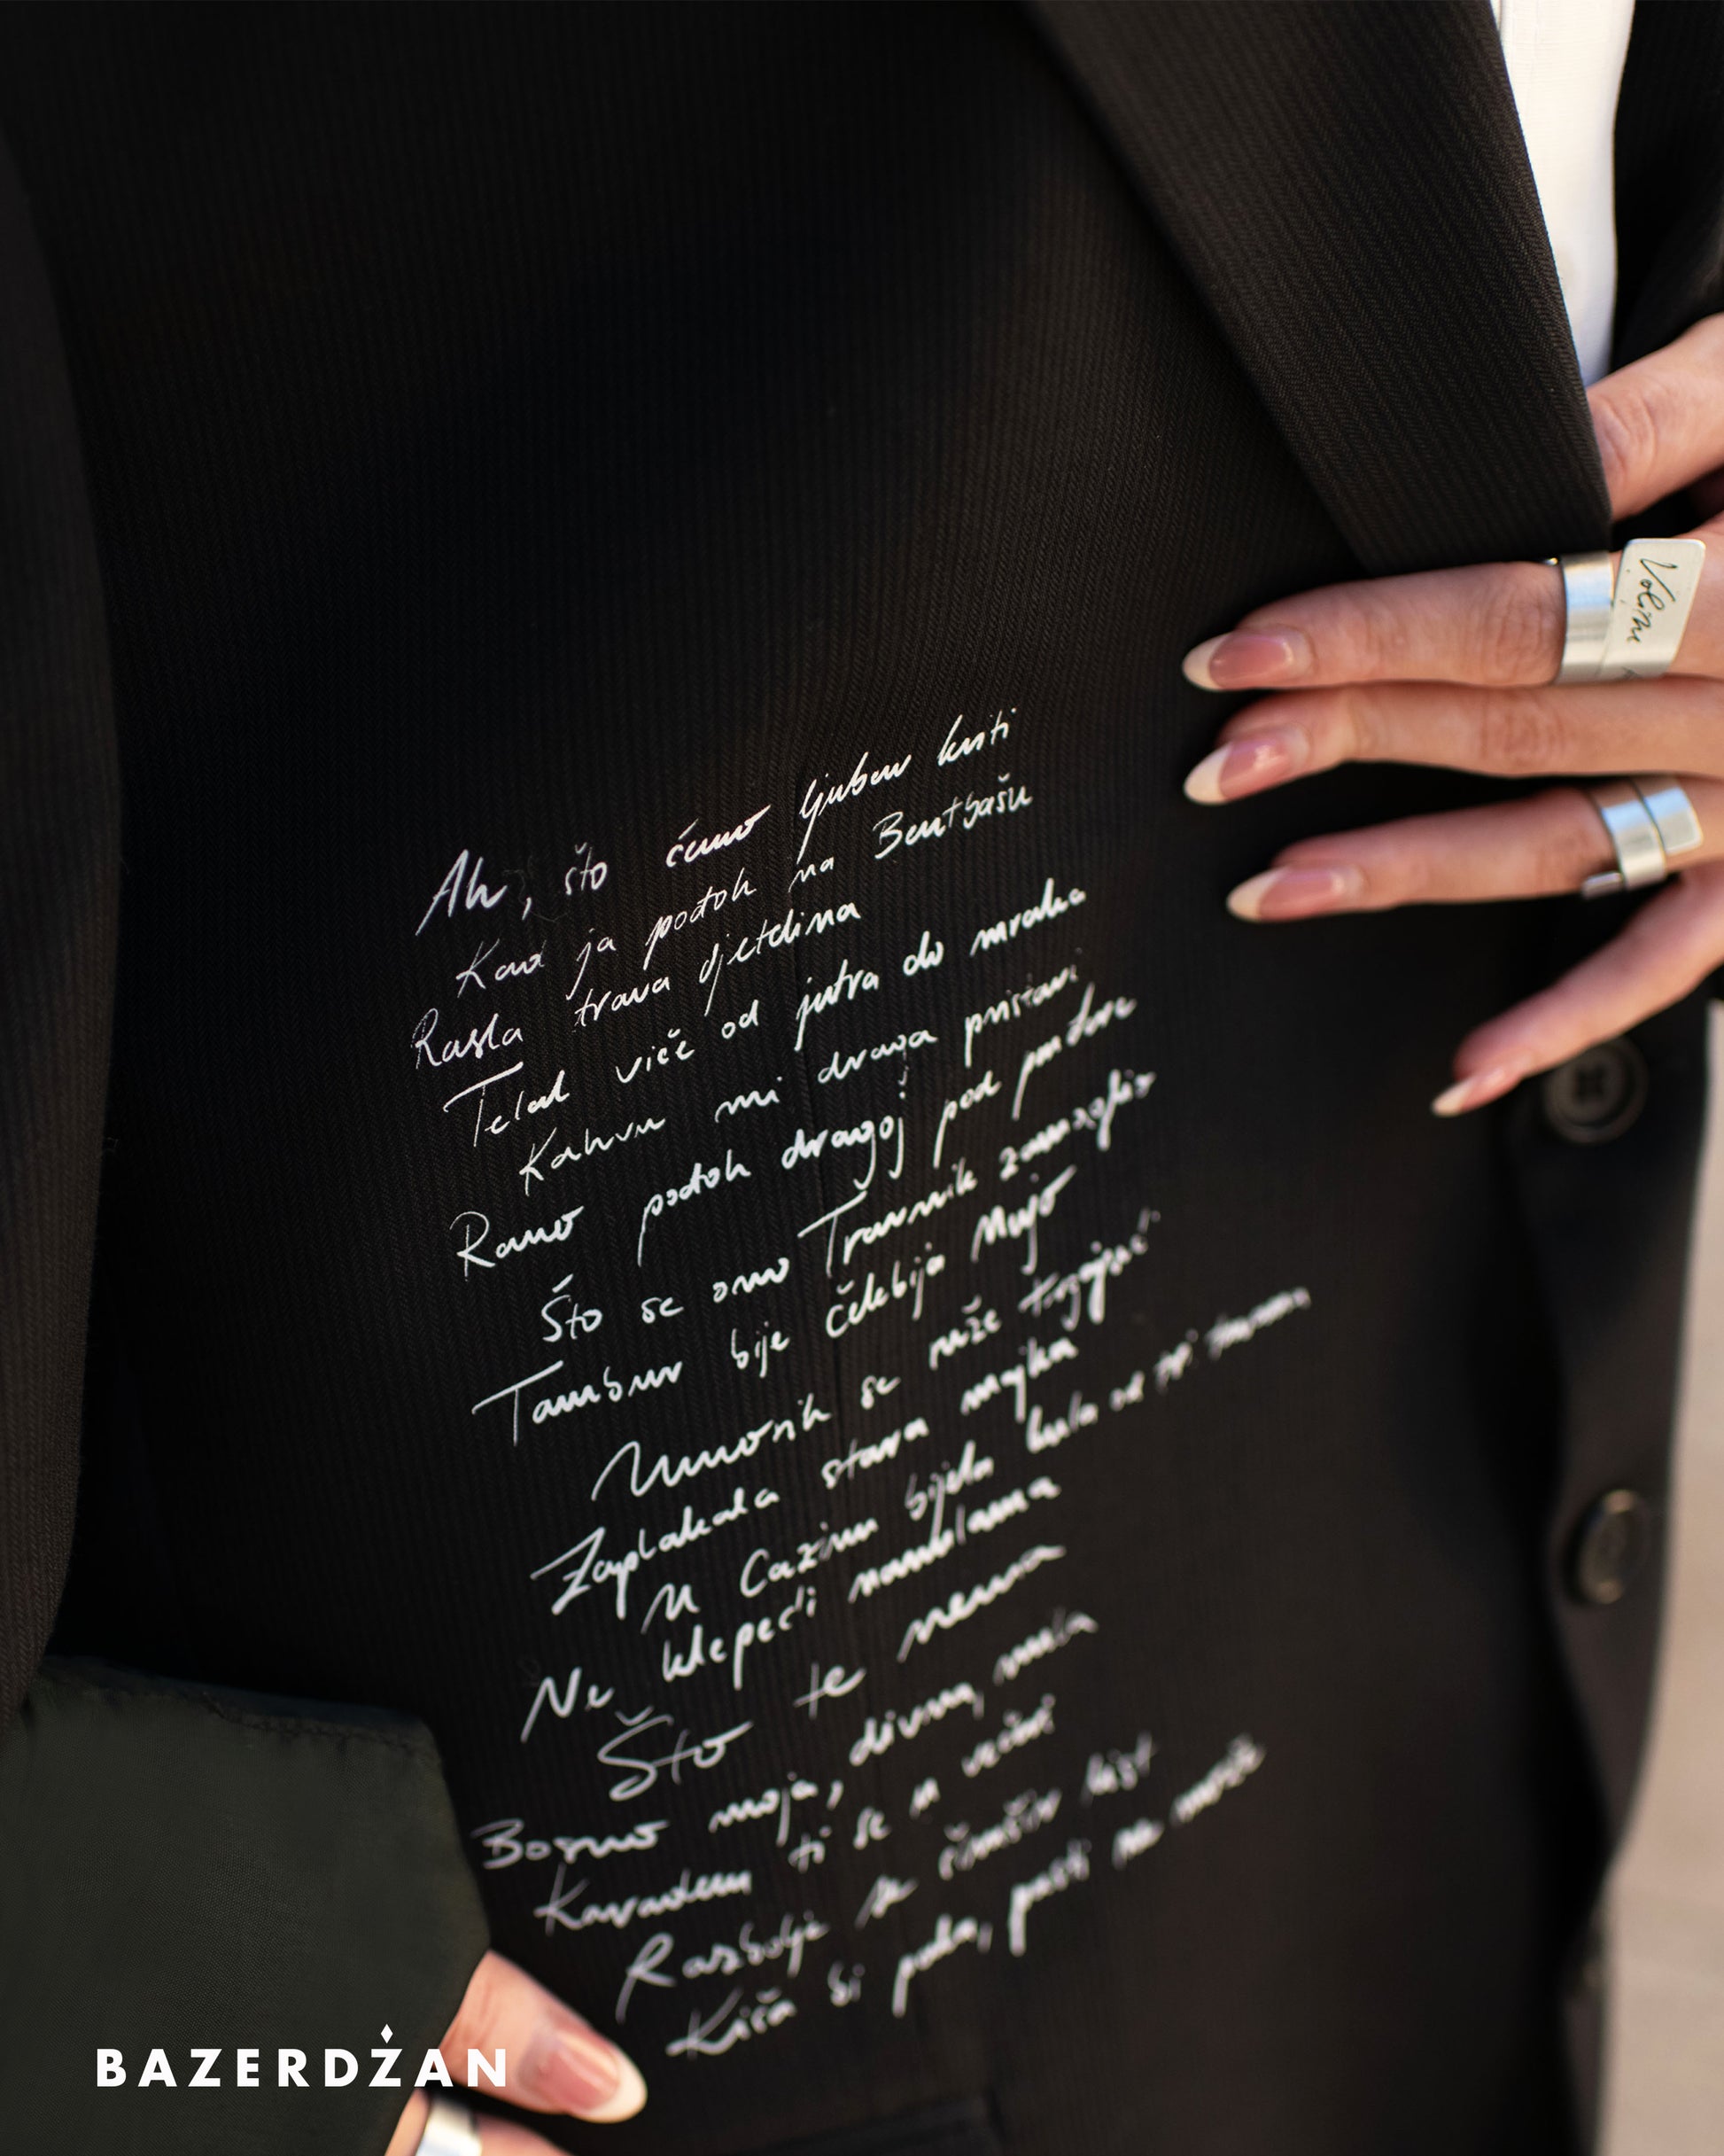 Ah, što ćemo ljubav kriti
Kad ja pođoh na Bentbašu
Rasla trava djetelina
Telal viče od jutra do mraka
Kahvu mi draga pristavi
Rano pođoh dragoj pod pendžere
Što se ono Travnik zamaglio
Tambur bije čelebija Mujo
Mnoštvo se
Zaplakala stara majka
U Cazinu bijela kula od tri tavana
Ne klepeći nanulama
Što te nema
Bosno moja, divna, mila
Kararadem ti se u večeri
Razbolje se šimšir list
Kiša bi pala, pasti ne može
Volim
BAZERDŽAN